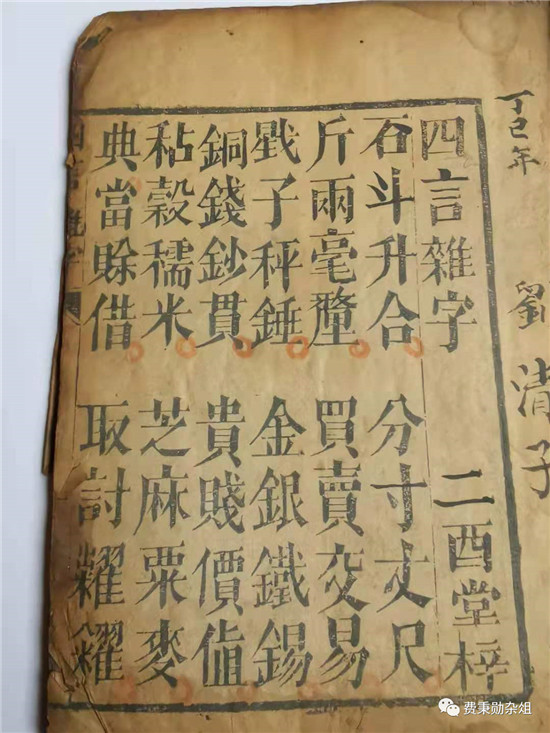 丁巳年 劉清子
四言雜字 二酉堂梓
石斗升合 分寸丈尺
斤兩毫釐 買賣交易
戥子秤錘 金銀鐵錫
銅錢鈔貫 貴賤價値
秥穀糯米 芝麻粟麥
典當賒借 取討糶糴
四言雜字
费秉勋杂俎